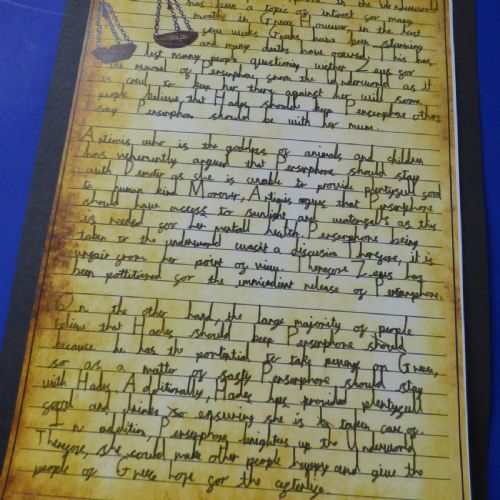 in the Underworld
has been a topic of interest sor many
months in Greece. However, in the last
sew weeks Greeks have been starving
and many deaths have occured. This has
lest many people questioning wether Zeus sor
the removal of Persephone srom the Underworld as it
is cruel to keep her there against her will some
people believe that Hades should keep Persephone others
say Persephone should be with her mum.
Artimis who is the goddess of animals and children
has vehemently argued that Persephone should stay
with Demeter as she is unable to provide plentysull sood
to human kind. Morover, Artimis argues that Persephone
should have access to sunlight and watersalls as this
is needed sor her mentall health. Persephone being
taken to the underworld wasnt a discussion. Theresore, it is
unsair srom her point of view. Theresore Zeus has
been petitioned sor the immiendient release of Persephone.
On the other hand, the large majority of people
believe that Hades should keep Persephone should
because he has the portential to take reveng on Greece,
so as a matter of sasty Persephone should stay
with Hades. Additionally, Hades has provided plentysull
sood and drinks so ensuring she is taken care of.
In addition, Persephone brighters up the Underworld.
Theresore, she could make other people happy and give the
people of Greece hope sor the asterlise.